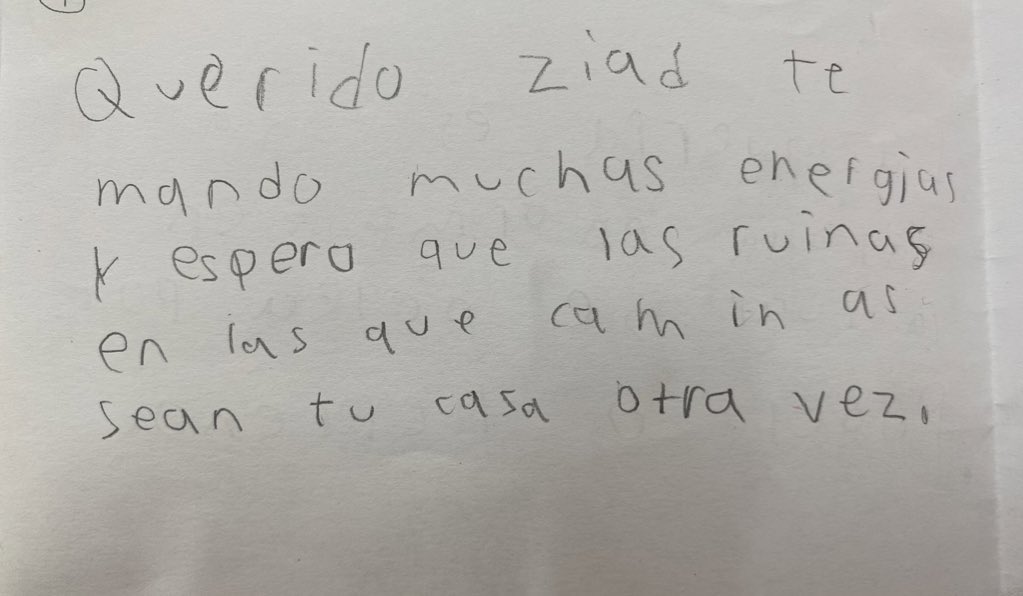 Querido ziad te
mando muchas energias
y espero que las ruinas
en las que caminas
sean tu casa otra vez.